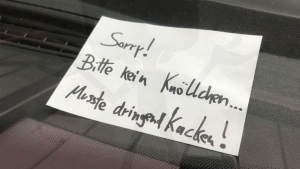 Sorry!
Bitte kein Knöllchen...
Musste dringend Kacken!